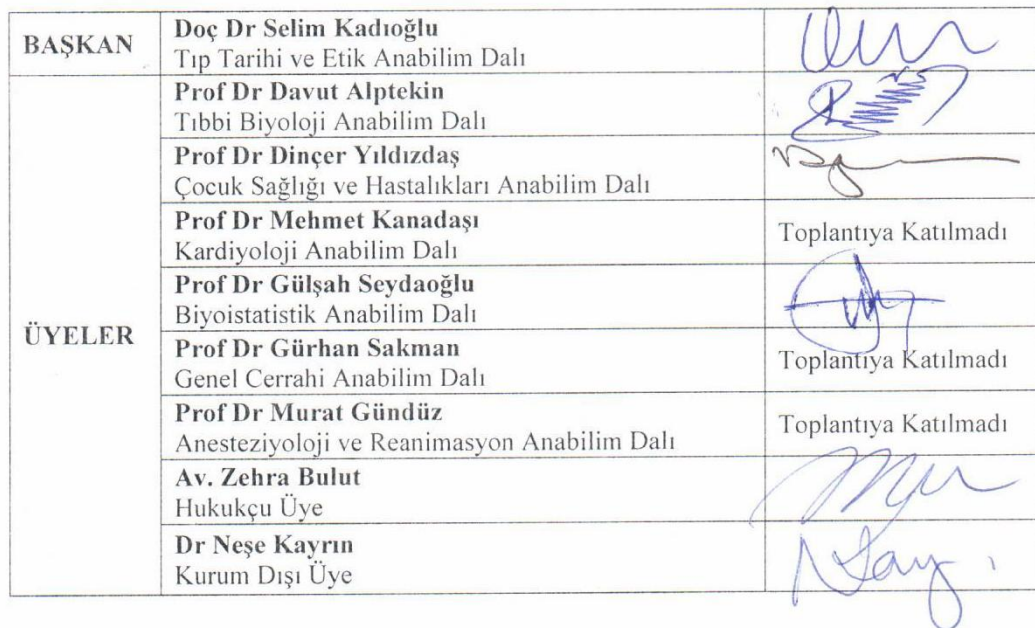 BAŞKAN
Doç Dr Selim Kadıoğlu
Tıp Tarihi ve Etik Anabilim Dalı
ÜYELER
Prof Dr Davut Alptekin
Tıbbi Biyoloji Anabilim Dalı
Prof Dr Dinçer Yıldızdaş
Çocuk Sağlığı ve Hastalıkları Anabilim Dalı
Prof Dr Mehmet Kanadaşı
Kardiyoloji Anabilim Dalı
Toplantıya Katılmadı
Prof Dr Gülşah Seydaoğlu
Biyoistatistik Anabilim Dalı
Prof Dr Gürhan Sakman
Genel Cerrahi Anabilim Dalı
Toplantıya Katılmadı
Prof Dr Murat Gündüz
Anesteziyoloji ve Reanimasyon Anabilim Dalı
Toplantıya Katılmadı
Av. Zehra Bulut
Hukukçu Üye
Dr Neşe Kayrın
Kurum Dışı Üye